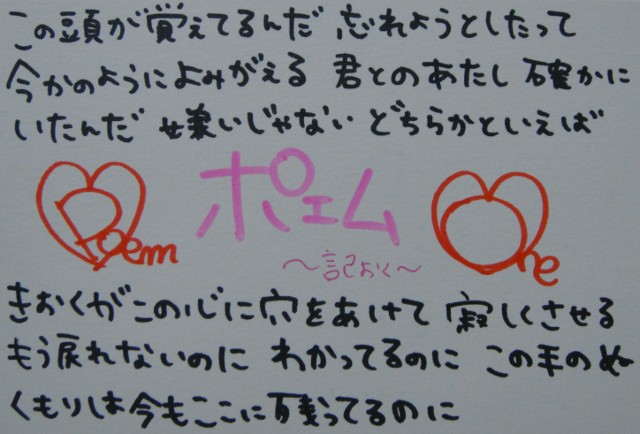 この頭が覚えてるんだ 忘れようとしたって
今かのようによみがえる 君とのあたし 確かに
いたんだ 嫌いじゃない どちらかといえば
Poem ポエム One
〜記おく〜
きおくがこの心に穴をあけて 寂しくさせる
もう戻れないのに わかってるのに この手のぬ
くもりは今もここに残ってるのに